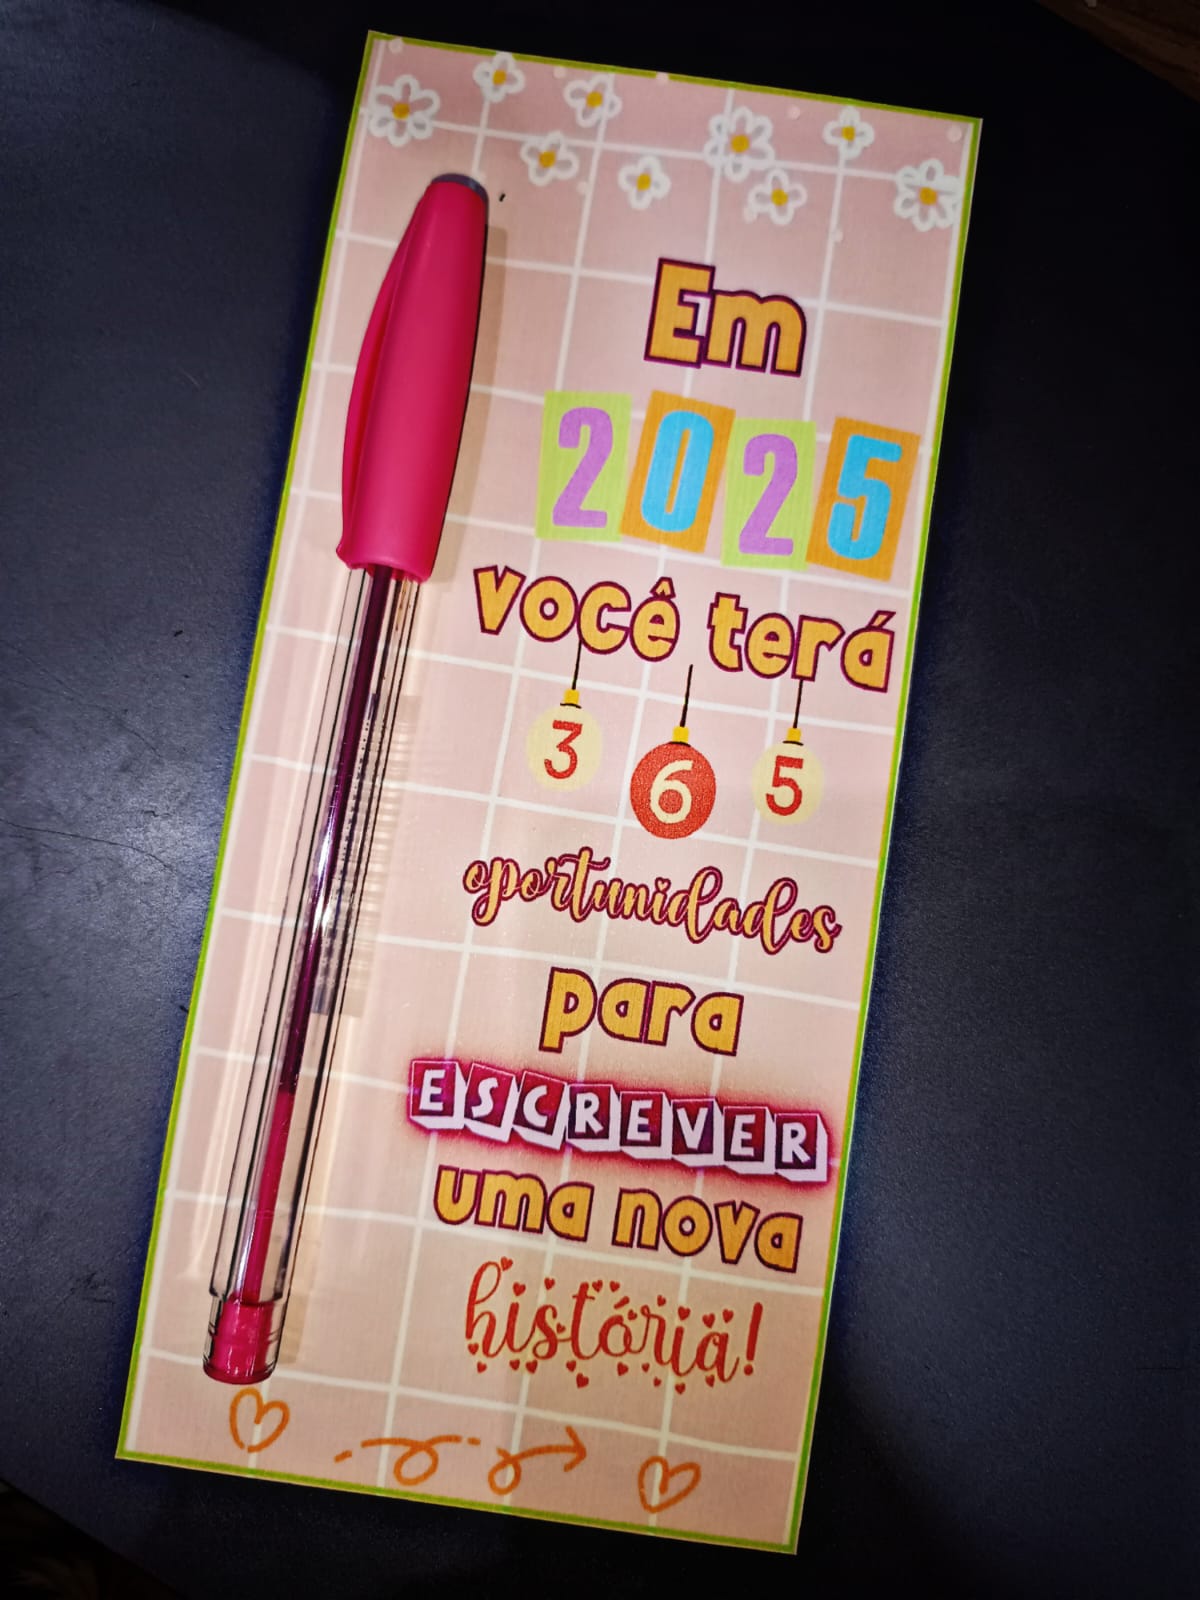 Em
2025
você terá
365
oportunidades
para
ESCREVER
uma nova
história!